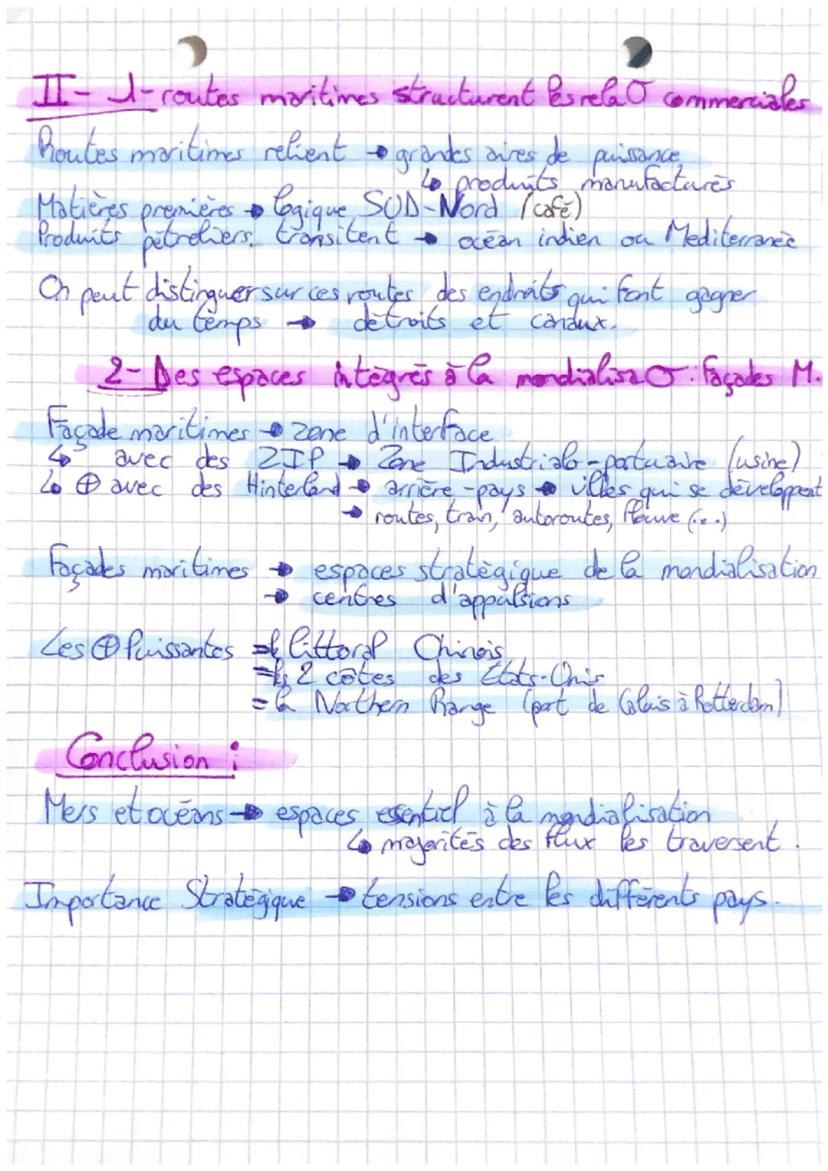 II - 1- routes maritimes structurent les relaσ commerciales
Routes maritimes relient → grandes aires de puissance
↳ produits manufacturés
Matières premières → logique SUD-Nord (café)
Produits pétroliers transitent → océan indien ou Mediterranée
On peut distinguer sur ces routes des endroits qui font gagner
du temps → détroits et canaux.
2- Des espaces intégrés à la mondialisaσ : façades M.
Façade maritimes → zone d'interface
↳ avec des ZIP → Zone Industrialo-portuaire (usine)
↳ ⊕ avec des Hinterland → arrière-pays → villes qui se développent
→ routes, train, autoroutes, fleuve (...)
Façades maritimes → espaces stratégique de la mondialisation
→ centres d'appulsions
Les ⊕ Puissantes = le littoral Chinois
= les 2 côtes des États-Unis
= la Northern Range (port de Calais à Rotterdam)
Conclusion :
Mers et océans → espaces essentiel à la mondialisation
↳ majorités des flux les traversent.
Importance Stratégique → tensions entre les différents pays.